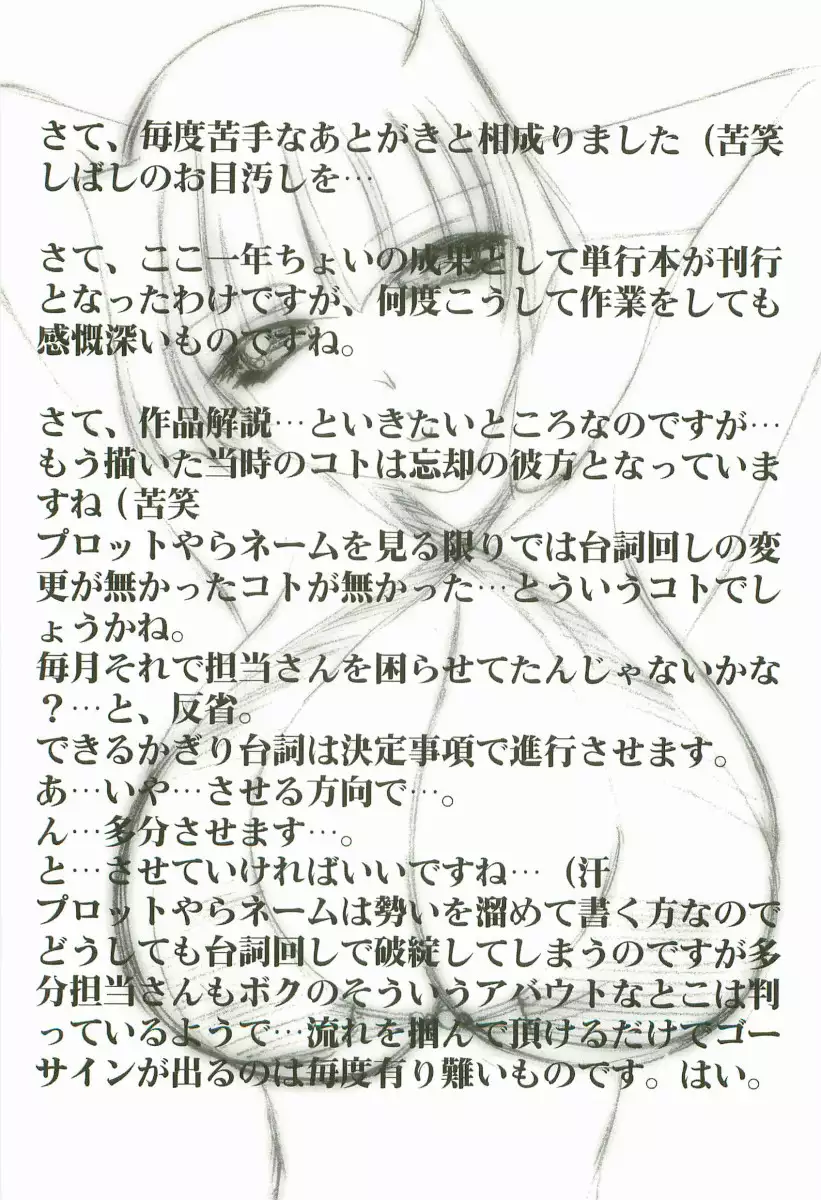 さて、毎度苦手なあとがきと相成りました（苦笑
しばしのお目汚しを…
さて、ここ一年ちょいの成果として単行本が刊行
となったわけですが、何度こうして作業をしても
感慨深いものですね。
さて、作品解説…といきたいところなのですが…
もう描いた当時のコトは忘却の彼方となっていま
すね（苦笑
プロットやらネームを見る限りでは台詞回しの変
更が無かったコトが無かった…とういうコトでし
ょうかね。
毎月それで担当さんを困らせてたんじゃないかな
？…と、反省。
できるかぎり台詞は決定事項で進行させます。
あ…いや…させる方向で…。
ん…多分させます…。
と…させていければいいですね…（汗
プロットやらネームは勢いを溜めて書く方なので
どうしても台詞回しで破綻してしまうのですが多
分担当さんもボクのそういうアバウトなとこは判
っているようで…流れを掴んで頂けるだけでゴー
サインが出るのは毎度有り難いものです。はい。